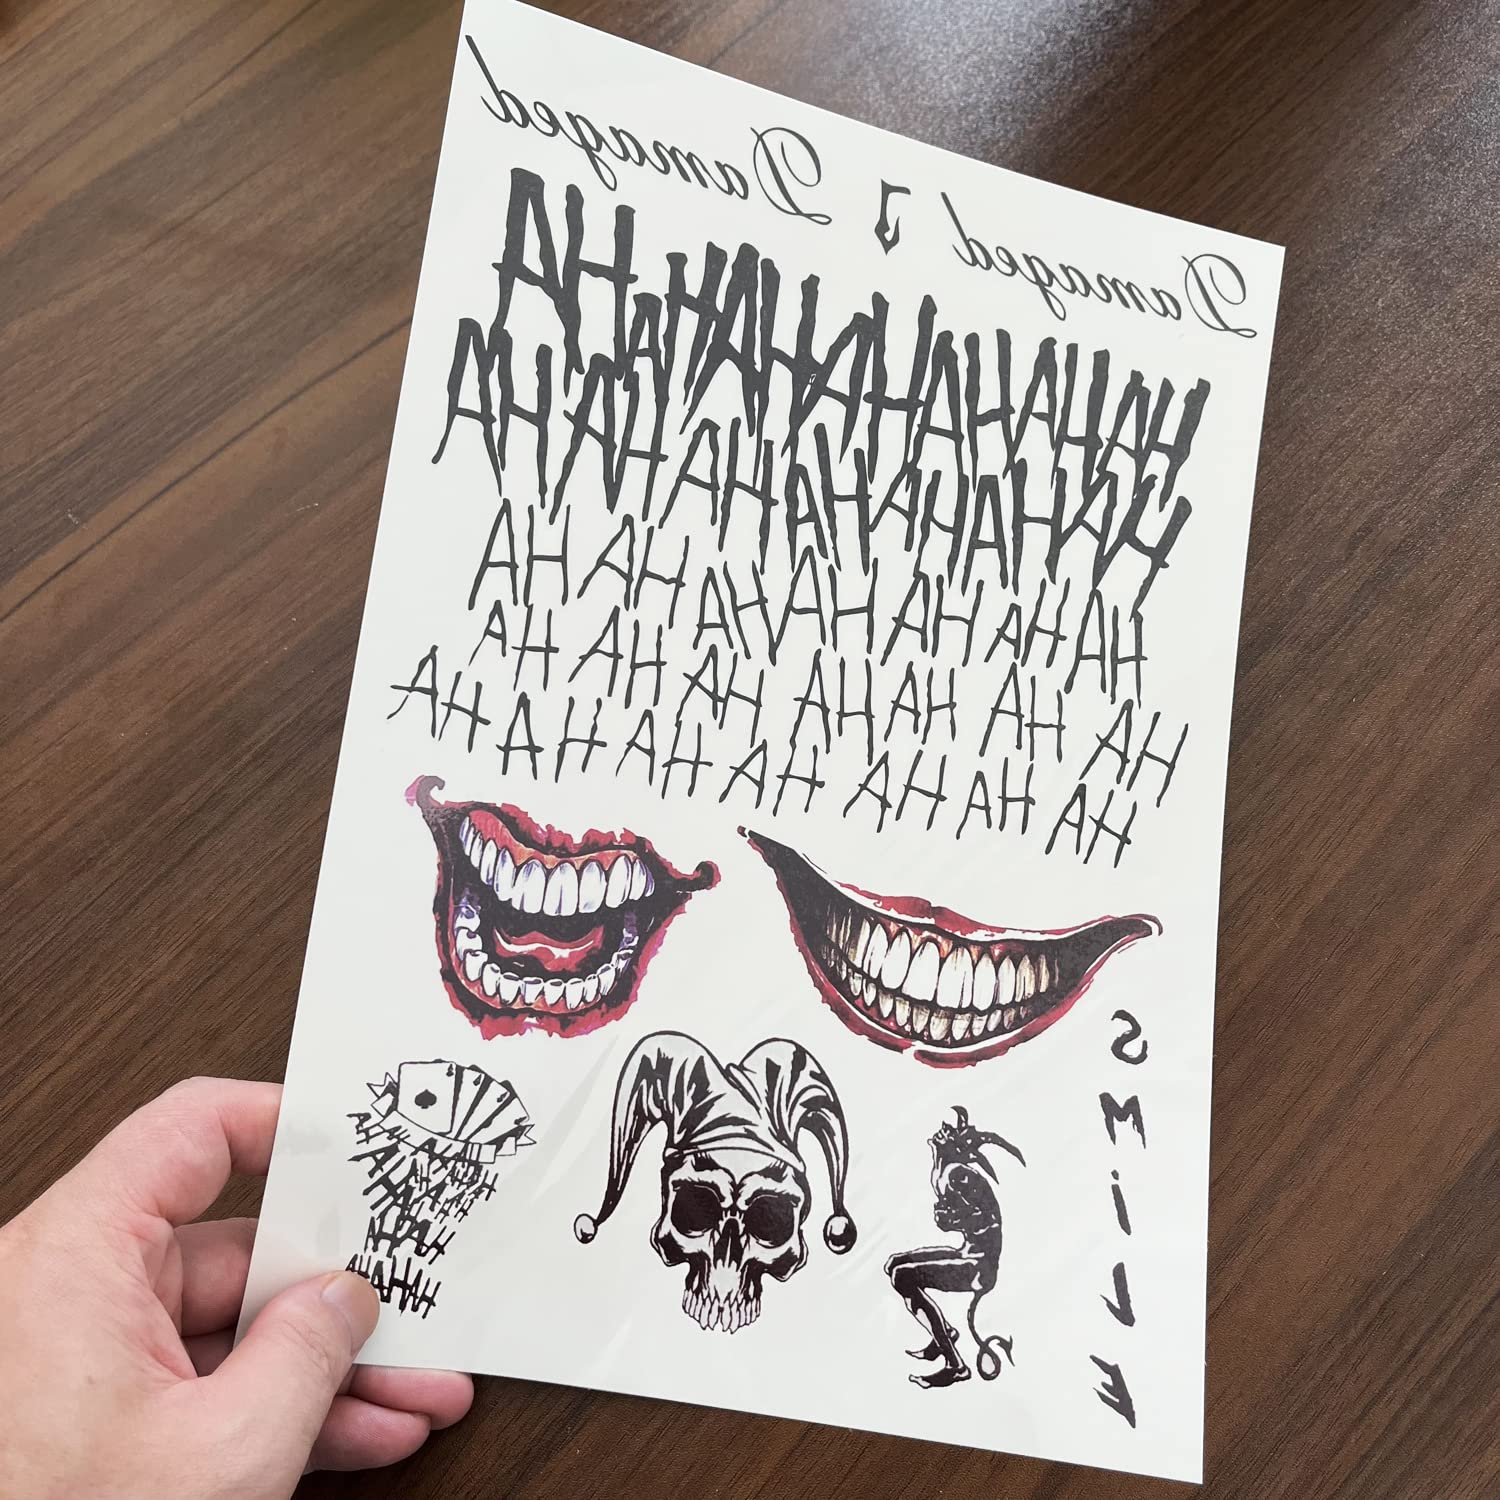 Damaged J Damaged
AH AH AH AH AH AH AH
AH AH AH AH AH AH AH
AH AH AH AH AH AH AH
AH AH AH AH AH AH AH
AH AH AH AH AH AH AH
SMiLE
AHAHAH